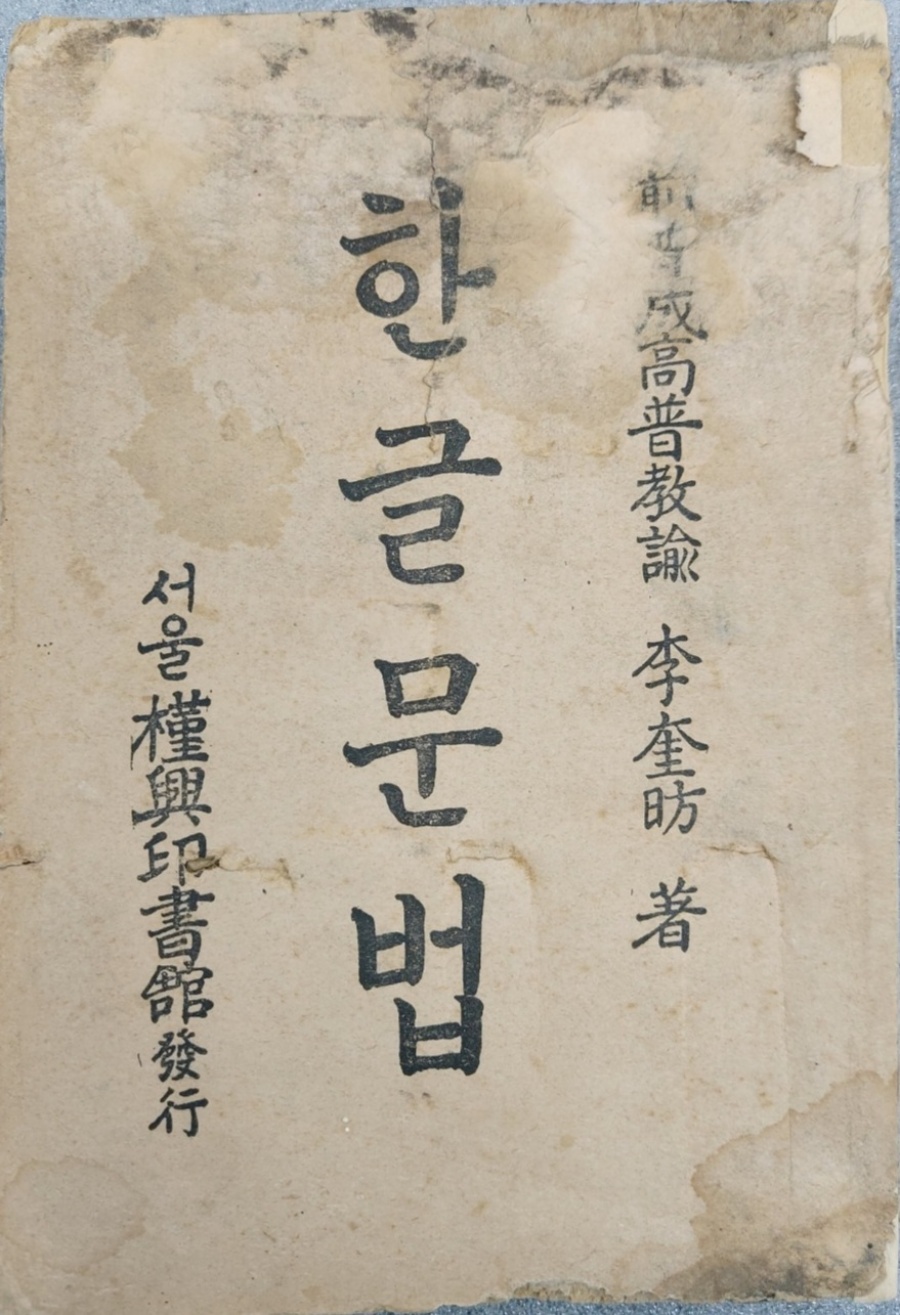 前普成高普教諭 李奎昉 著
한글문법
서울槿興印書舘發行